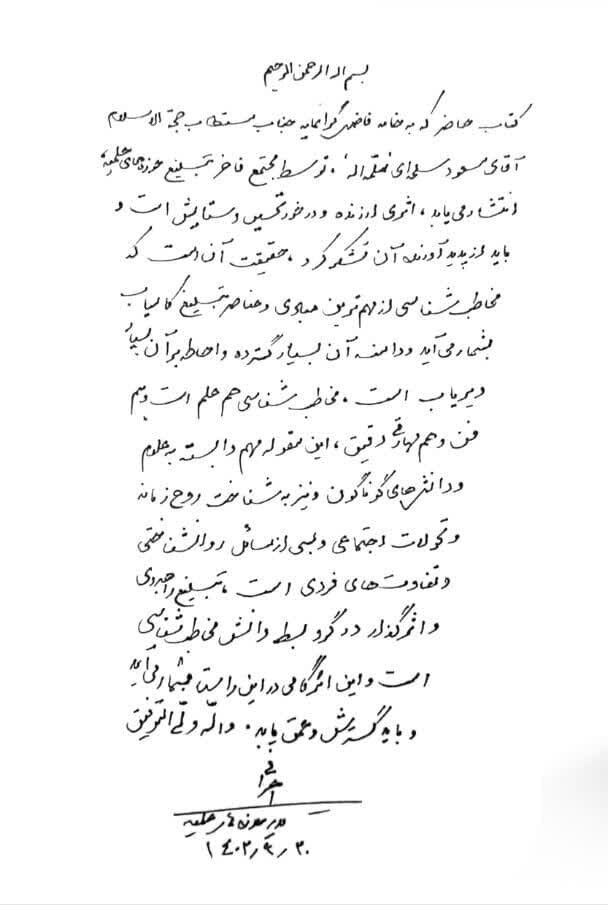 بسم اله الرحمن الرحیم
کتاب حاضر که به خامه فاضل گرانمایه جناب مستطاب حجة الاسلام
آقای مسعود سلمه اله، توسط مجتمع فاخر تبلیغ حوزه‌های علمیه
انتشار می یابد، اثری ارزنده و درخور تحسین و ستایش است و
باید از پدید آورنده آن تشکر کرد، حقیقت آن است که
مخاطب شناسی از مهم ترین مبادی و عناصر تبلیغ کامیاب
بشمار می آید و دامنه آن بسیار گسترده و احاطه بر آن بسیار
دیریاب است، مخاطب شناسی هم علم است و هم
فن و هم مهارتی دقیق، این مقوله مهم وابسته به علوم
و دانش های گوناگون و نیز به شناخت روح زمانه
و تحولات اجتماعی و بسی از مسائل روانشناختی
و تفاوت های فردی است، تبلیغ راهبردی
و اثرگذار در گرو بسط دانش مخاطب شناسی
است و این اثر گامی در این راستا بشمار می آید
و باید گسترش و عمق یابد. واله ولی التوفیق
اعرافی
مدیر حوزه های علمیه
۱۴۰۳٫۹٫۳۰